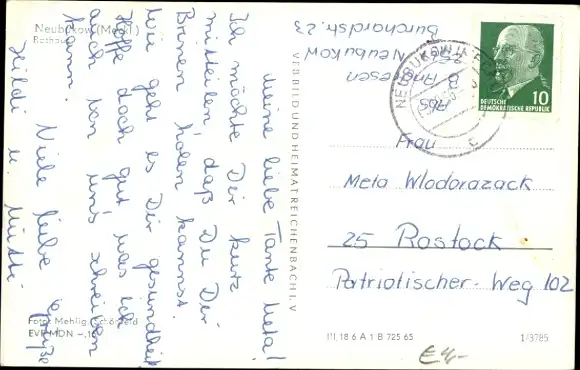 Neubukow (Meckl.)
Rathaus
Meine liebe Tante Meta!
Ich möchte Dir kurz
mitteilen, daß Du Dir
Birnen holen kannst.
Wie geht es Dir gesundheitl.
Hoffe doch gut was ich
auch von uns schreiben
kann.
Viele liebe Grüße
Heidi u. Mutti
Foto: Mehlig, Schönfeld
EVP MDN -.10
VEB BILD UND HEIMAT REICHENBACH I. V
Abs.
Neubukow
Burchardstr. 23
NEUBUKOW
c
DEUTSCHE
DEMOKRATISCHE REPUBLIK
10
Frau
Meta Wlodorazack
25 Rostock
Patriotischer-Weg 102
III, 18 6 A 1 B 725 65
1/3785
€4,-